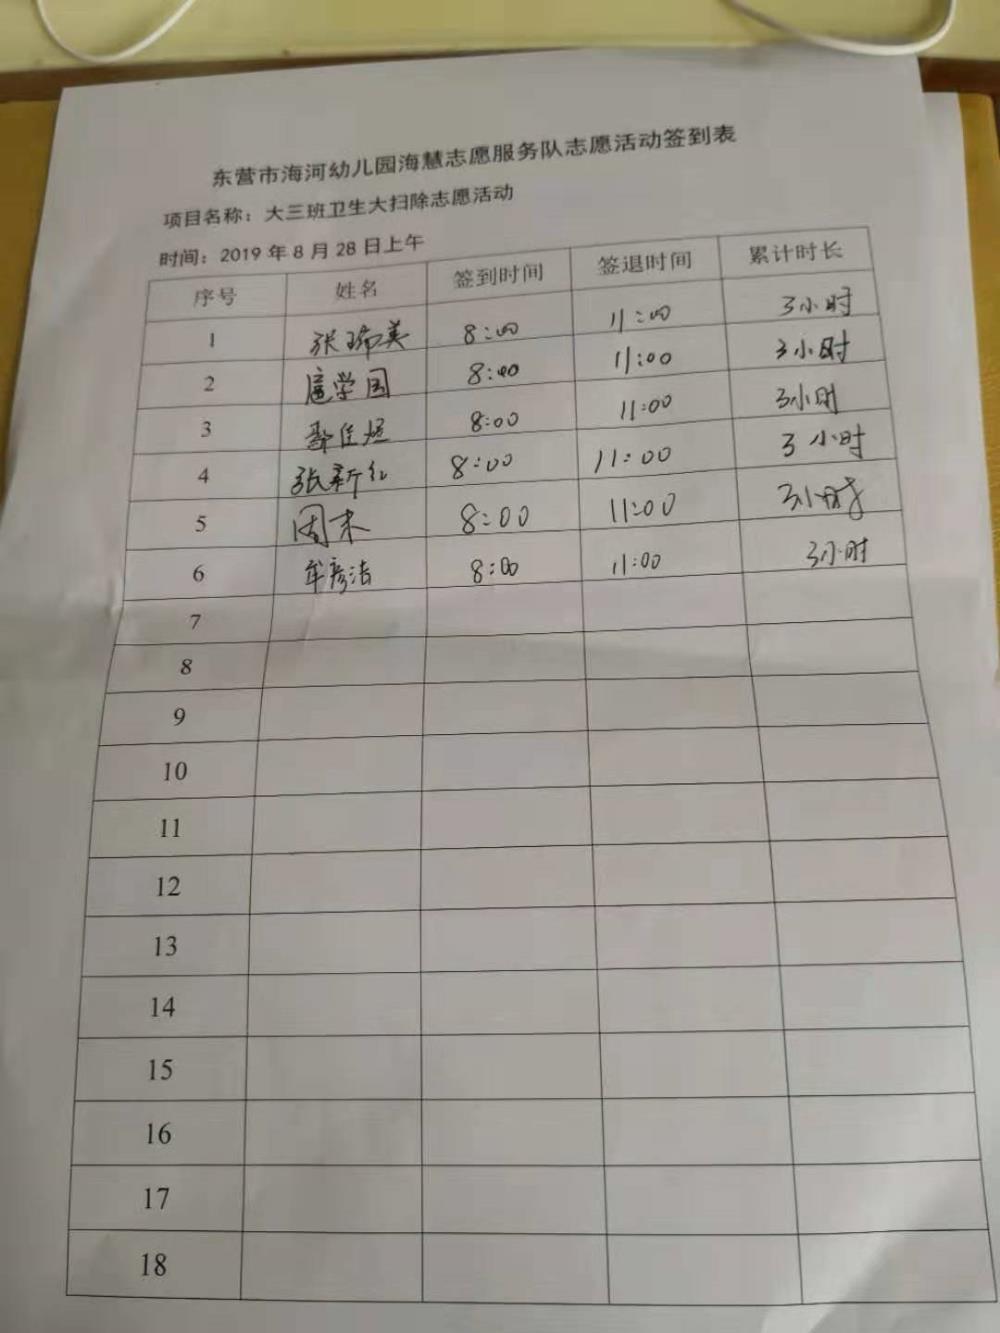 东营市海河幼儿园海慧志愿服务队志愿活动签到表
项目名称：大三班卫生大扫除志愿活动
时间：2019 年 8 月 28 日上午
序号 姓名 签到时间 签退时间 累计时长
1 张瑞美 8:00 11:00 3小时
2 扈学国 8:00 11:00 3小时
3 8:00 11:00 3小时
4 张新红 8:00 11:00 3小时
5 周末 8:00 11:00 3小时
6 牟彦洁 8:00 11:00 3小时
7
8
9
10
11
12
13
14
15
16
17
18